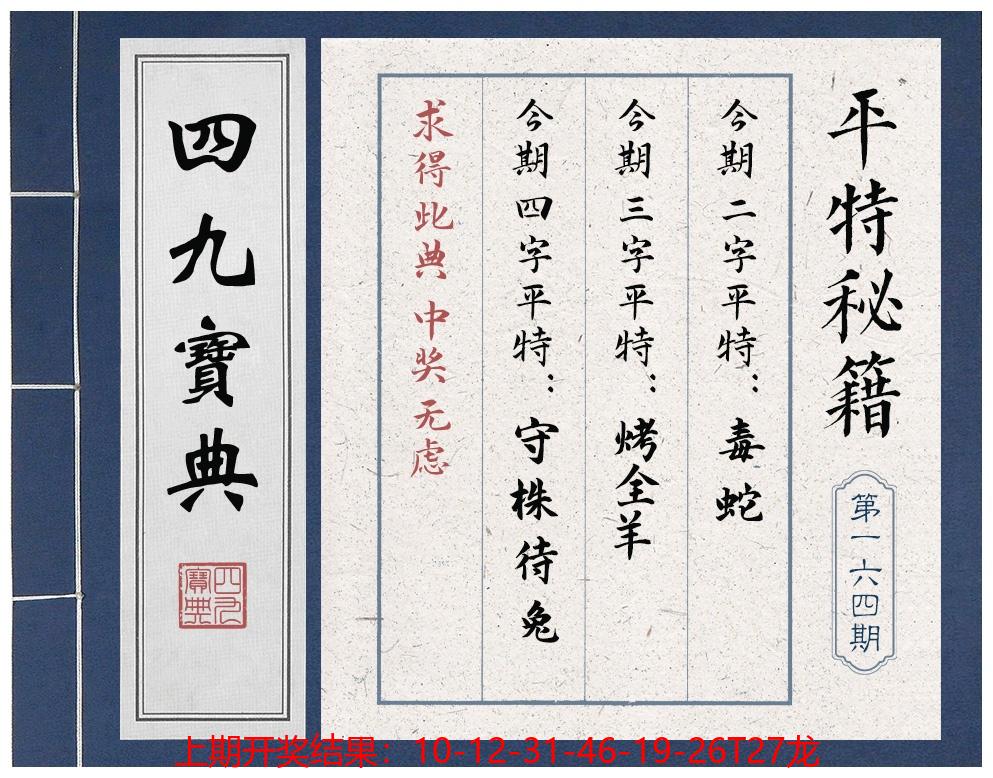 平特秘籍
第一六四期
今期二字平特：毒蛇
今期三字平特：烤全羊
今期四字平特：守株待兔
求得此典 中奖无虑
四九寶典
四九寶典
上期开奖结果：10-12-31-46-19-26T27龙